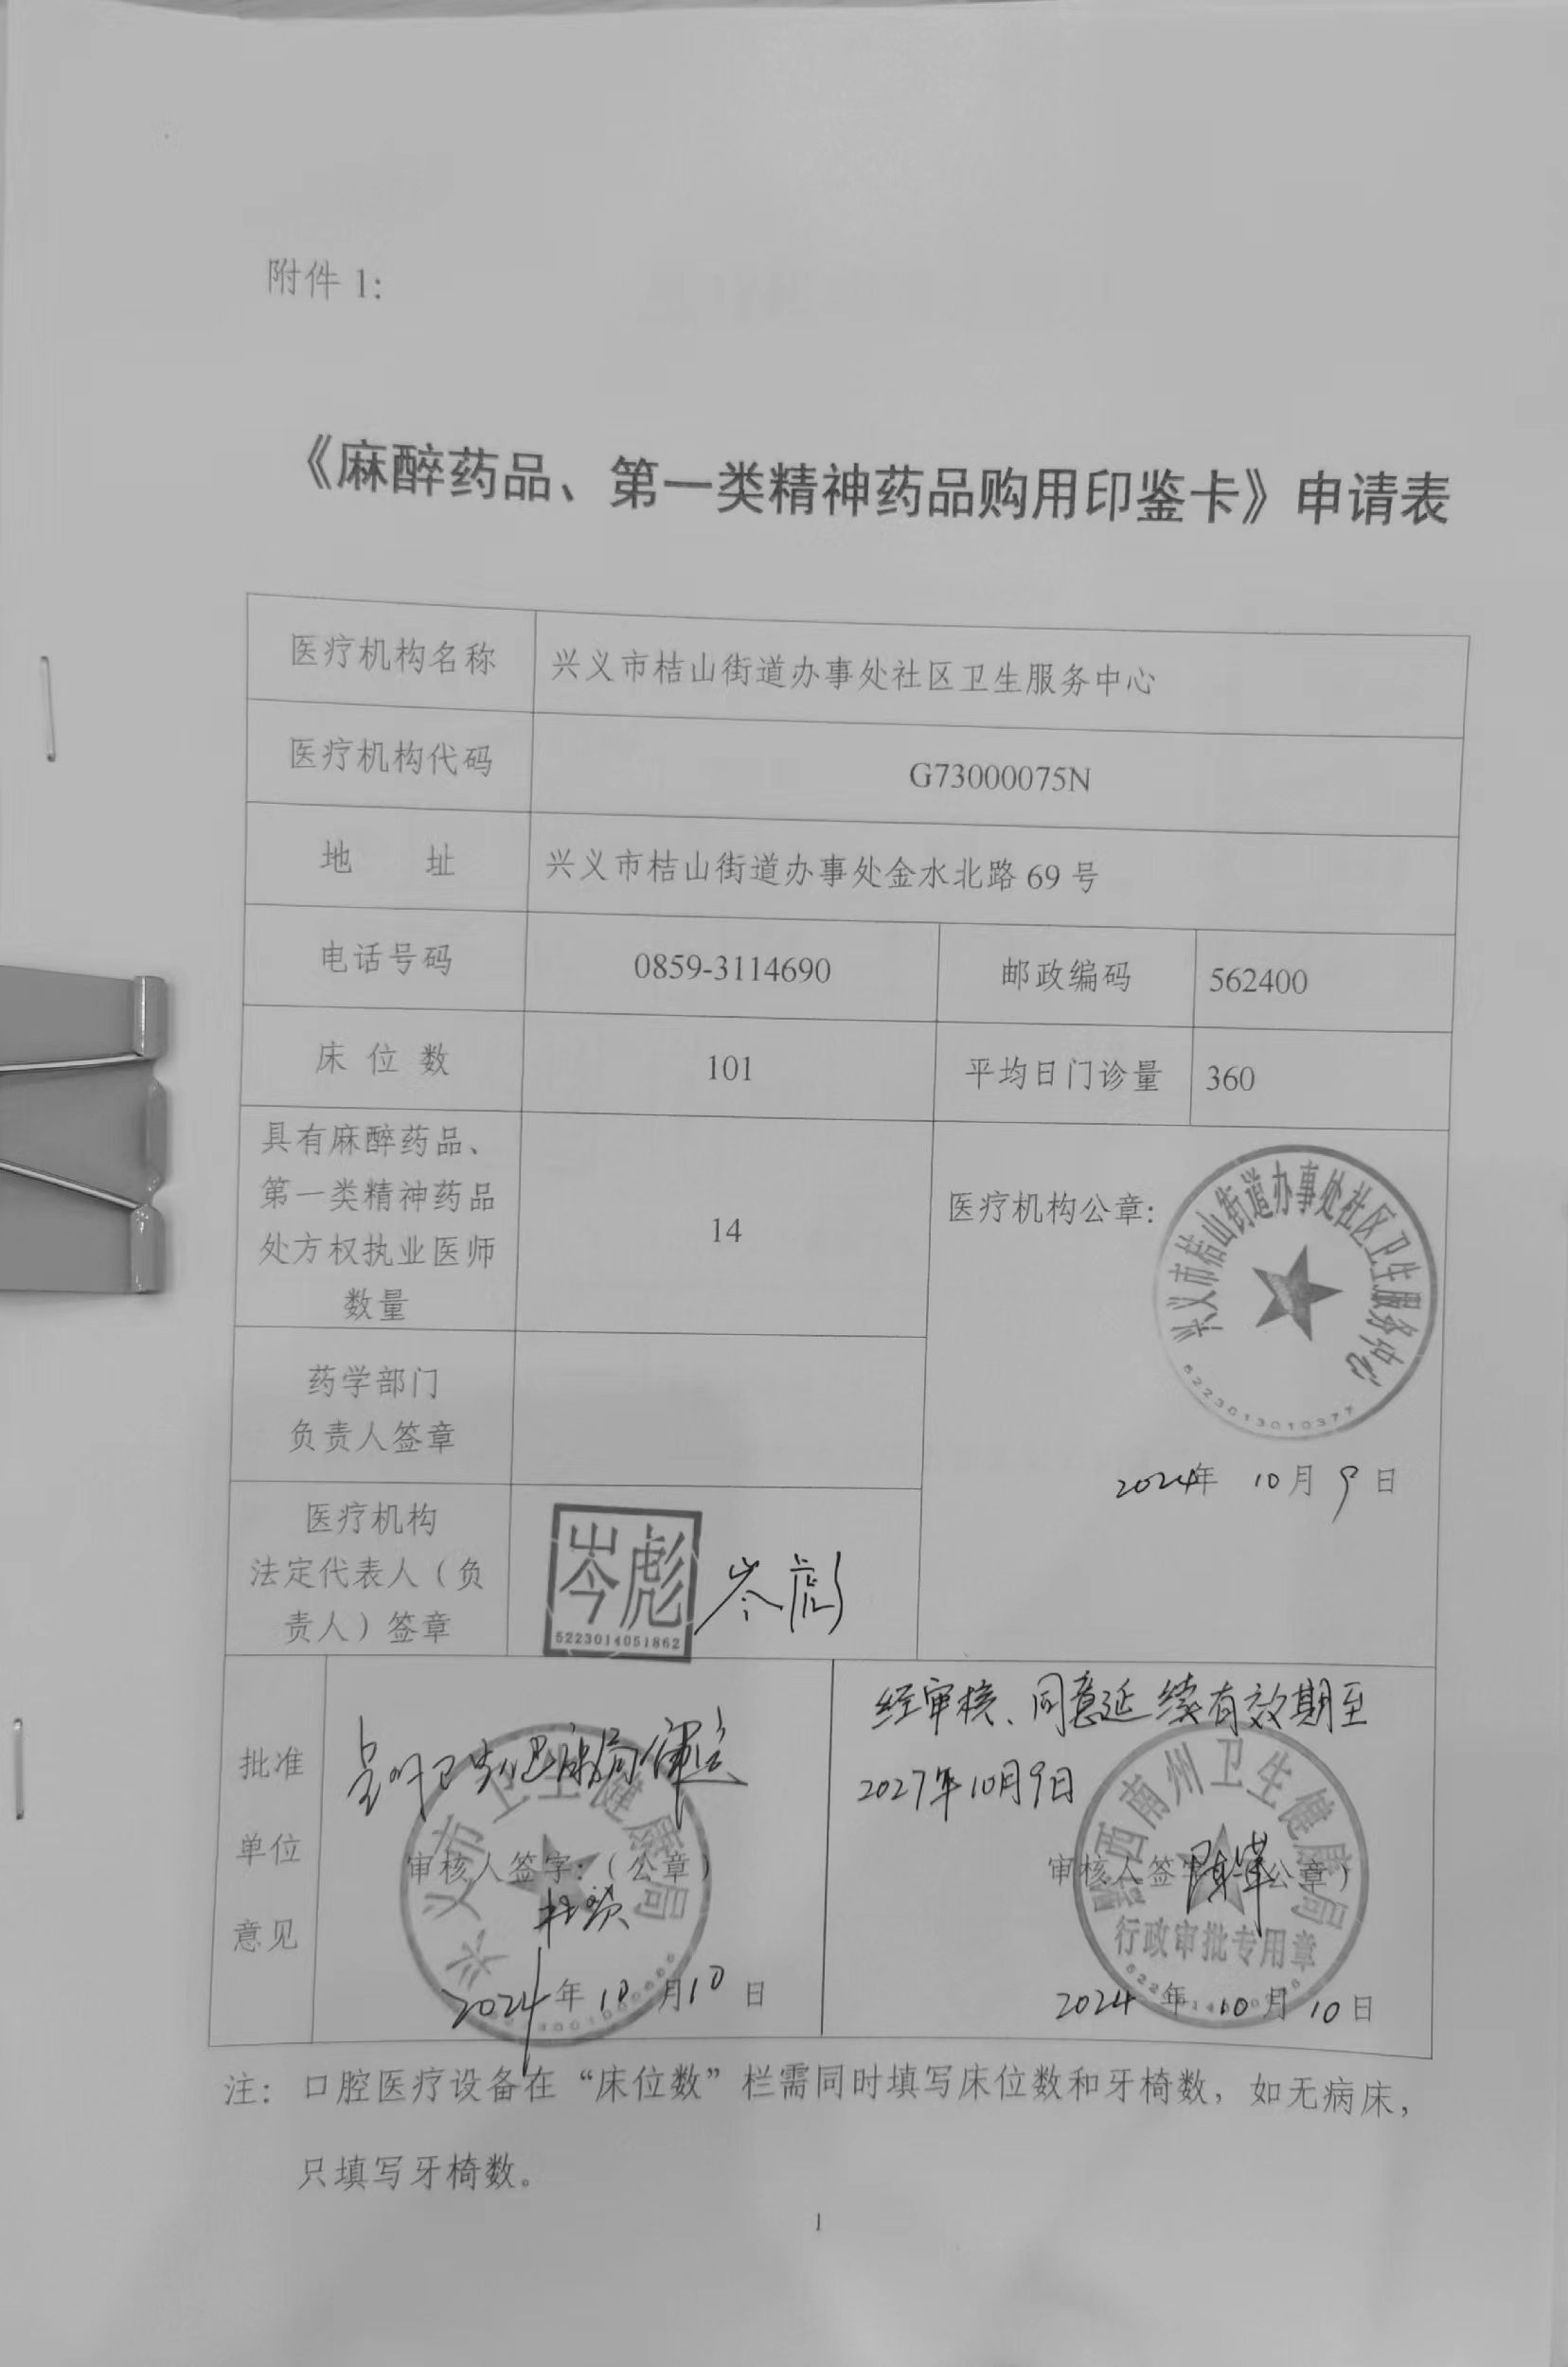 附件 1：
《麻醉药品、第一类精神药品购用印鉴卡》申请表
医疗机构名称 兴义市桔山街道办事处社区卫生服务中心
医疗机构代码 G73000075N
地 址 兴义市桔山街道办事处金水北路 69 号
电话号码 0859-3114690 邮政编码 562400
床 位 数 101 平均日门诊量 360
具有麻醉药品、
第一类精神药品
处方权执业医师
数量
14
医疗机构公章：
兴义市桔山街道办事处社区卫生服务中心
5223013010377
2024年 10月 9日
药学部门
负责人签章
医疗机构
法定代表人（负
责人）签章
岑彪
5223014051862
岑彪
批准
单位
意见
兴义市卫生健康局
审核人签字：（公章）
2024年 10月10日
经审核、同意延续有效期至
2027年10月9日
黔西南州卫生健康局
审核人签字 公章）
行政审批专用章
2024年 10月10日
注： 口腔医疗设备在“床位数”栏需同时填写床位数和牙椅数，如无病床，
只填写牙椅数。
1